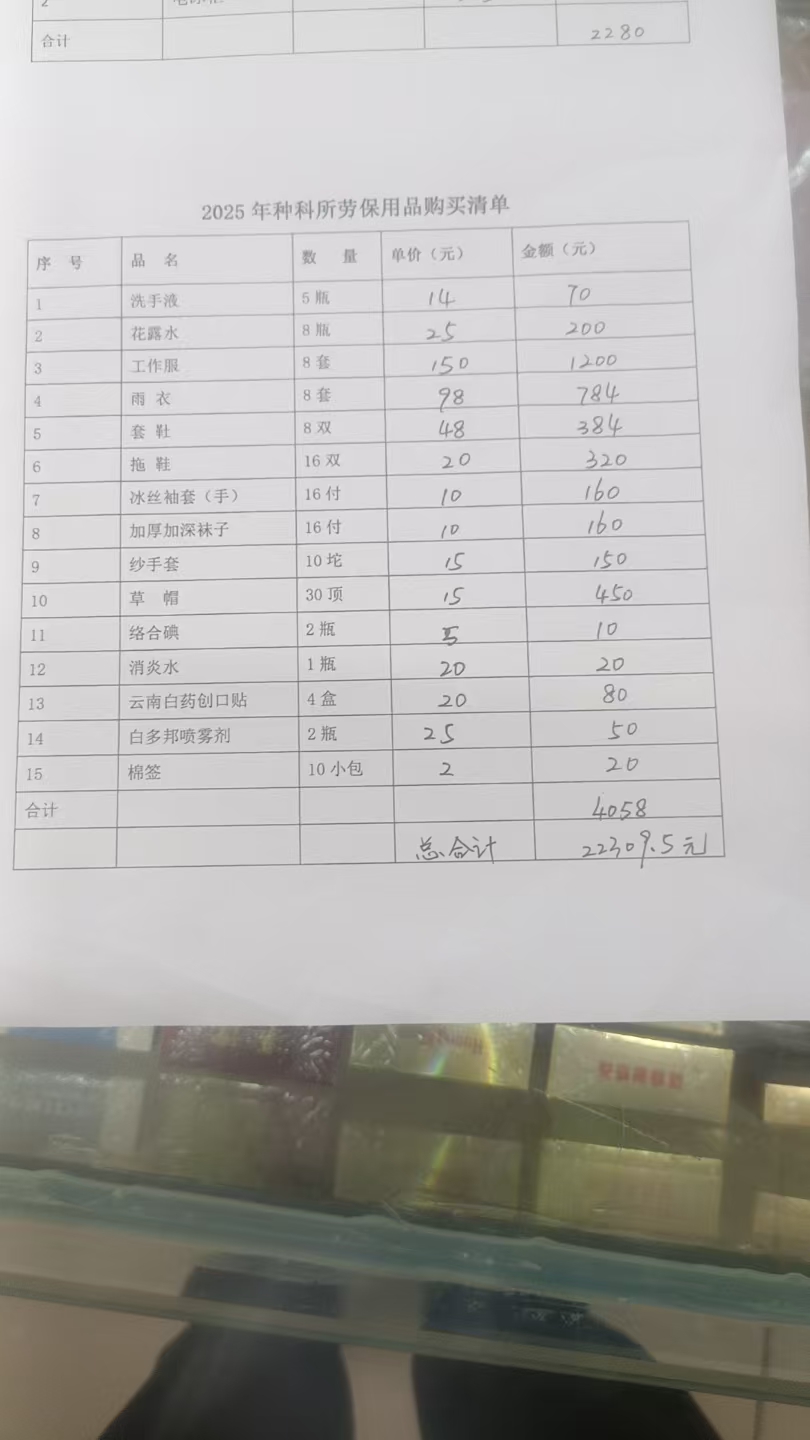 2
合计 2280
2025 年种科所劳保用品购买清单
序 号 品 名 数 量 单价（元） 金额（元）
1 洗手液 5 瓶 14 70
2 花露水 8 瓶 25 200
3 工作服 8 套 150 1200
4 雨 衣 8 套 98 784
5 套 鞋 8 双 48 384
6 拖 鞋 16 双 20 320
7 冰丝袖套（手） 16 付 10 160
8 加厚加深袜子 16 付 10 160
9 纱手套 10 坨 15 150
10 草 帽 30 顶 15 450
11 络合碘 2 瓶 5 10
12 消炎水 1 瓶 20 20
13 云南白药创口贴 4 盒 20 80
14 白多邦喷雾剂 2 瓶 25 50
15 棉签 10 小包 2 20
合计 4058
总合计 22309.5元